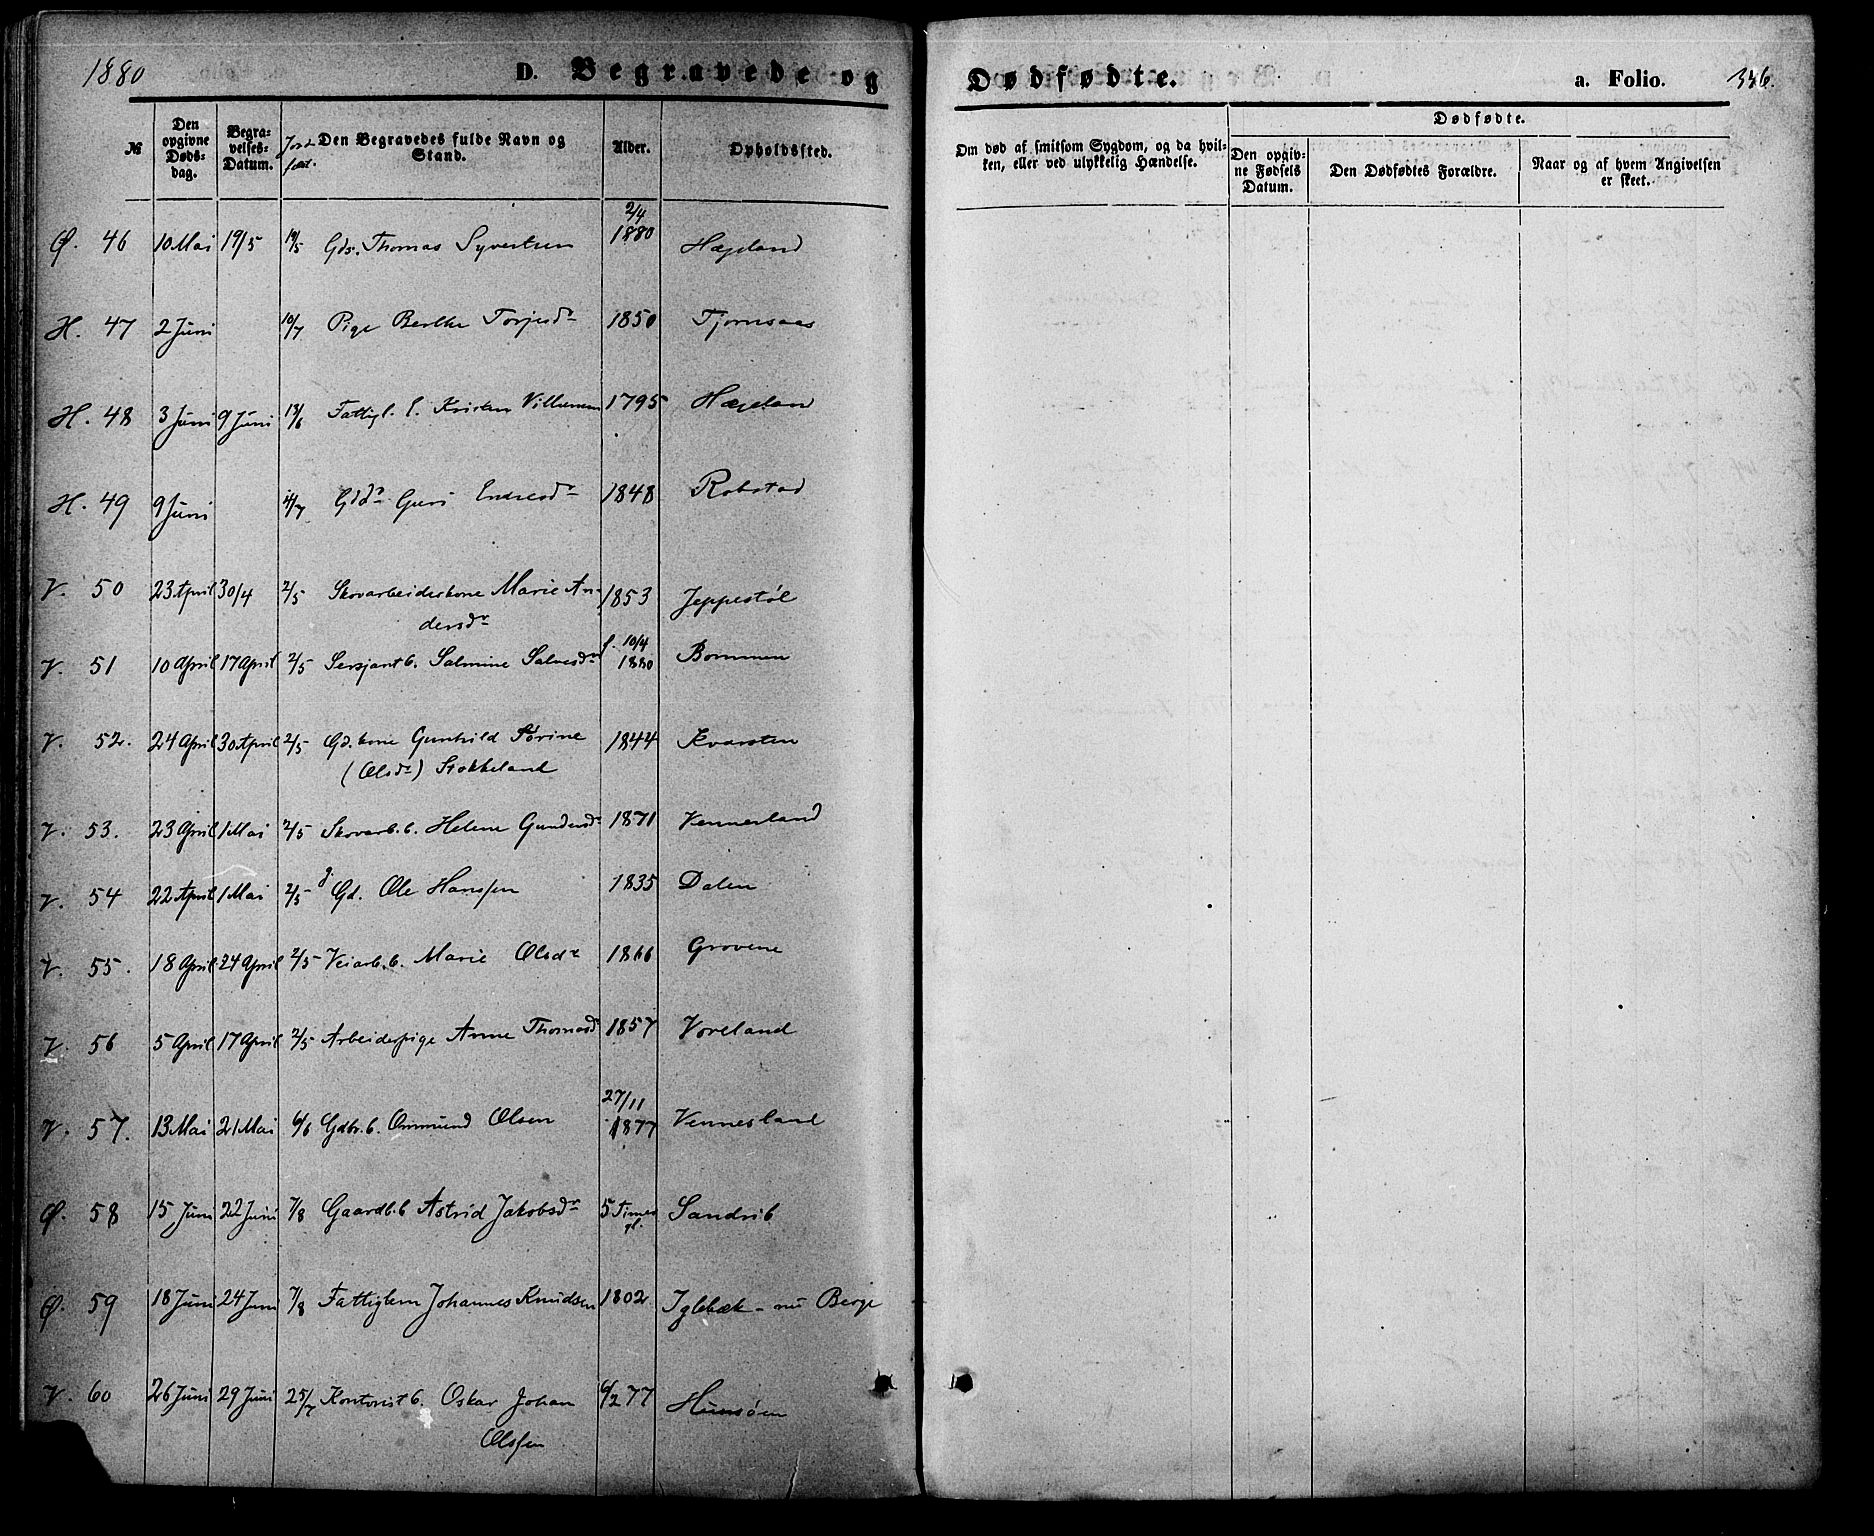 1880 D. Begravede og Dødfødte. a. Folio. 346.
№ Den opgivne Døds-dag. Begra-velses-Datum. Jord-fæst. Den Begravedes fulde Navn og Stand. Alder. Opholdssted. Om død af smitsom Sygdom, og da hvil-ken, eller ved ulykkelig Hændelse. Dødfødte. Den opgiv-ne Fødsels Datum. Den Dødfødtes Forældre. Naar og af hvem Angivelsen er skeet.
2/4
Ø. 46 10 Mai 19/5 19/5 Gds. Thomas Syvertsen 1880 Hægeland
H. 47 2 Juni 10/7 Pige Berthe Torjesdr 1850 Tjomsaas
H. 48 3 Juni 9 Juni 13/6 Fattigl. E. Kristen Villumsen 1795 Hægeland
H. 49 9 Juni 11/7 Gddr Guri Endresdr 1848 Robstad
V. 50 23 April 30/4 2/5 Skovarbeiderkone Marie An-
dersdr 1853 Jeppestøl
V. 51 10 April 17 April 2/5 Sersjantb. Salmine Salvesdr f. 10/4 1880 Bommen
V. 52. 24 April 30 April 2/5 Gd.kone Gunhild Sørine 1844 Kvarsten
(Olsdr) Stokkeland
V. 53. 23 April 1 Mai 2/5 Skovarb.b. Helene Gundersdr 1871 Vennesland
V. 54 22 April 1 Mai 2/5 Gd. Ole Hanssen 1835 Dalen
V. 55. 18 April 24 April 2/5 Veiarb.b. Marie Olsdr 1866 Grovene
V. 56 5 April 17 April 2/5 Arbeiderpige Anne Thomasdr 1857 Voreland
27/11
V. 57. 13 Mai 21 Mai 6/6 Gdbr.b. Ommund Olsen 1877 Vennesland
Ø. 58 15 Juni 22 Juni 7/8 Gaardb.b Astrid Jakobsdr 5 Timer Sandrib
gl.
Ø. 59 18 Juni 24 Juni 7/8 Fattiglem Johannes Knudsen 1802 Iglebæk - nu Berge
V. 60 26 Juni 29 Juni 25/7 Kontorist b. Oskar Johan 6/2 77 Hunsøen
Olssen